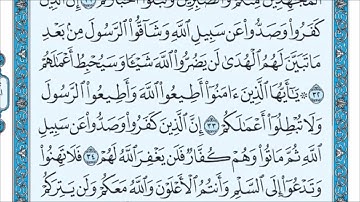 ٱلْمُجَٰهِدِينَ مِنكُمْ وَٱلصَّٰبِرِينَ وَنَبْلُوَا۟ أَخْبَارَكُمْ ۝٣١ إِنَّ ٱلَّذِينَ
كَفَرُوا۟ وَصَدُّوا۟ عَن سَبِيلِ ٱللَّهِ وَشَآقُّوا۟ ٱلرَّسُولَ مِنۢ بَعْدِ
مَا تَبَيَّنَ لَهُمُ ٱلْهُدَىٰ لَن يَضُرُّوا۟ ٱللَّهَ شَيْـًٔا وَسَيُحْبِطُ أَعْمَٰلَهُمْ
۝٣٢ ۞ يَٰٓأَيُّهَا ٱلَّذِينَ ءَامَنُوٓا۟ أَطِيعُوا۟ ٱللَّهَ وَأَطِيعُوا۟ ٱلرَّسُولَ
وَلَا تُبْطِلُوٓا۟ أَعْمَٰلَكُمْ ۝٣٣ إِنَّ ٱلَّذِينَ كَفَرُوا۟ وَصَدُّوا۟ عَن سَبِيلِ
ٱللَّهِ ثُمَّ مَاتُوا۟ وَهُمْ كُفَّارٌ فَلَن يَغْفِرَ ٱللَّهُ لَهُمْ ۝٣٤ فَلَا تَهِنُوا۟
وَتَدْعُوٓا۟ إِلَى ٱلسَّلْمِ وَأَنتُمُ ٱلْأَعْلَوْنَ وَٱللَّهُ مَعَكُمْ وَلَن يَتِرَكُمْ